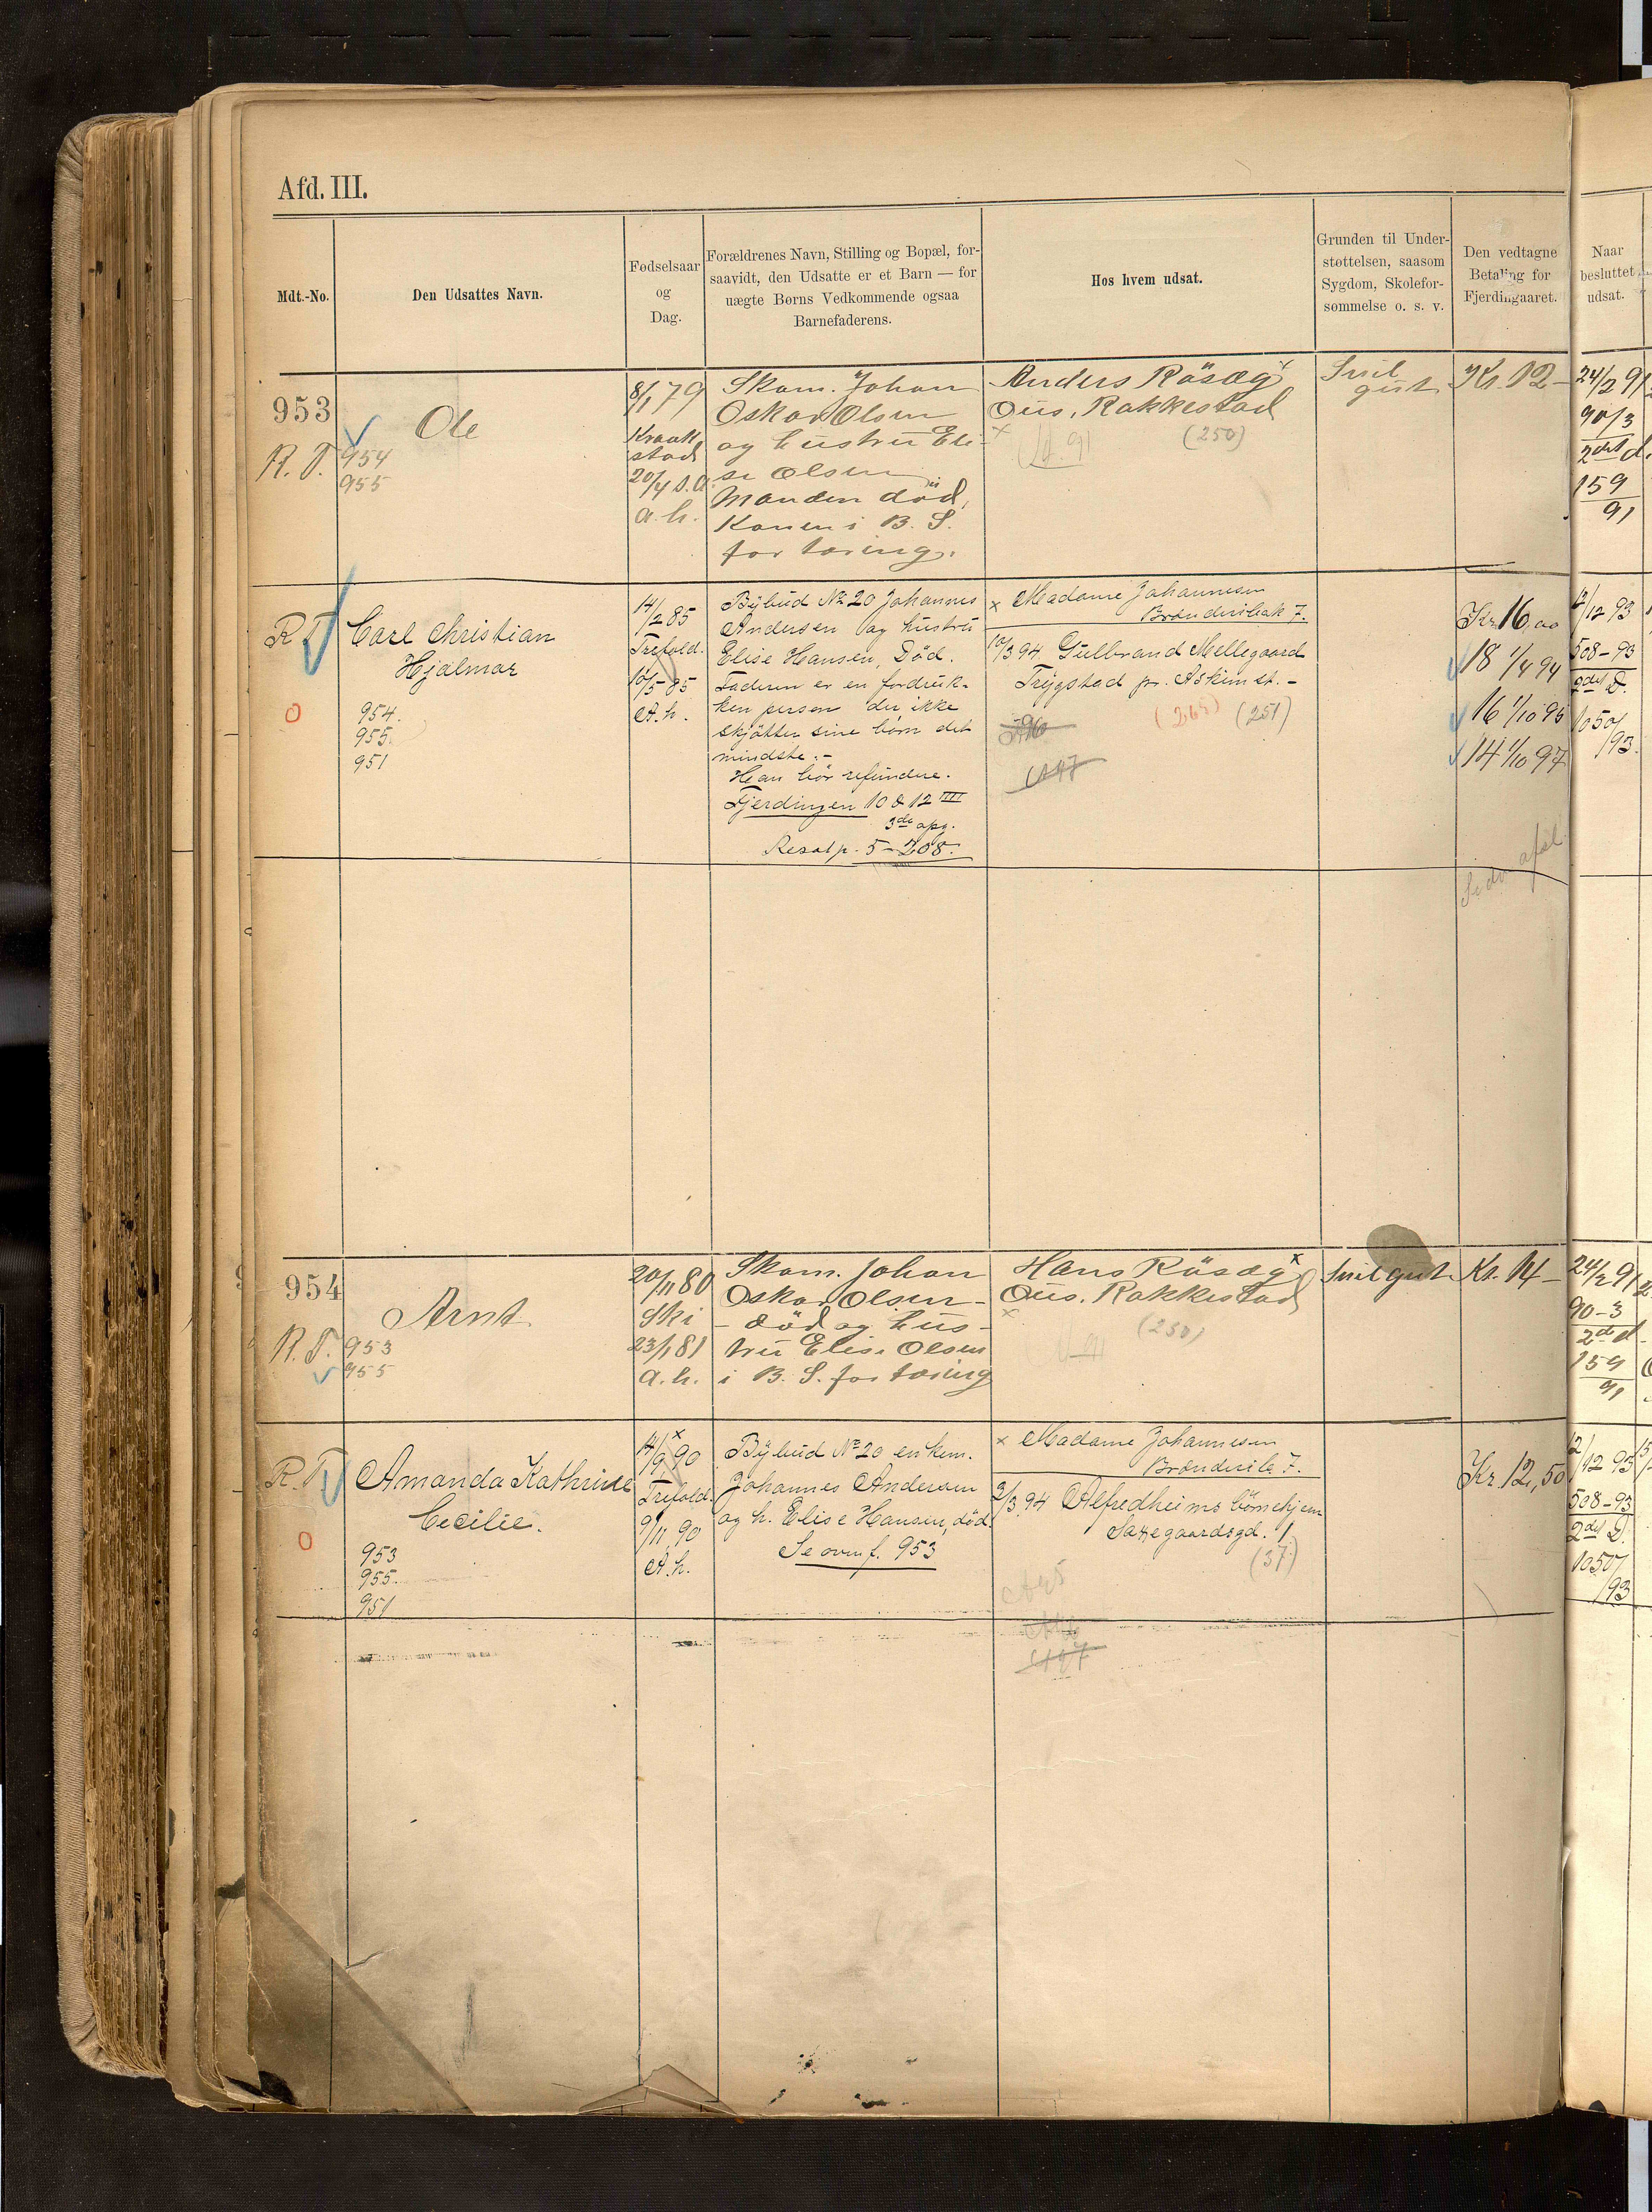 Afd. III.
Mdt.-No.
Den Udsattes Navn.
Fødselsaar
og
Dag.
Forældrenes Navn, Stilling og Bopæl, for-
saavidt, den Udsatte er et Barn — for
uægte Børns Vedkommende ogsaa
Barnefaderens.
Hos hvem udsat.
Grunden til Under-
støttelsen, saasom
Sygdom, Skolefor-
sømmelse o. s. v.
Den vedtagne
Betaling for
Fjerdingaaret.
Naar
besluttet
udsat.
953
R. T.
Ole
954
955
8/1 79
Kraak
stad
20/4 s. a.
a. h.
Skom. Johan
Oskar Olsen
og hustru Eli-
se Olsen
Manden död,
Konen i B. S.
for tæring.
Anders Räsæg x
Ous, Rakkestad
x
(250)
Snil
gut
Kr. 12-
24/2 91
90/3
2det d.
159
91
R T
Carl Christian
Hjalmar
954.
955.
951
14/2 85
Trefold.
10/5 85
A. h.
Bÿbud No 20 Johannes
Andersen og hustru
Elise Hansen, Död.
Faderen er en fordruk-
ken person der ikke
skjötter sine börn det
mindste.-
Han bör refundere.
Fjerdingen 10 & 12 III
3de opg.
Resol p. 5-208.
x Madame Johannesen
Brænderibak 7.
10/3 94 Gulbrand Mellegaard
Trÿgstad pr. Askim st.-
(251)
97
Kr. 16,00
18 1/4 94
16 1/10 95
14 1/10 97
12/12 93
508-93
2det D.
1050/
93.
954
R. T.
Arnt
953
955
20/11 80
Ski
23/1 81
a. h.
Skom. Johan
Oskar Olsen-
- död og hus-
tru Elise Olsen
i B. S. for tæring
Hans Räsæg x
Ous. Rakkestad
x
(250)
Snil gut
Kr. 14-
24/2 91
90-3
2de d.
159
91
R. T.
Amanda Kathrine
Cecilie.
953
955.
951
14/9 90 x
Trefold.
9/11 90
A. h.
Bÿbud No 20 enkem.
Johannes Andersen
og h. Elise Hansen, död.
Se ovenf. 953
x Madame Johannesen
Brænderib. 7.
2/3 94 Alfredheims börnehjem
Sattegaardsgd. 1
(37)
97
Kr. 12,50
12/12 93
508-93
2det D.
1050/
93